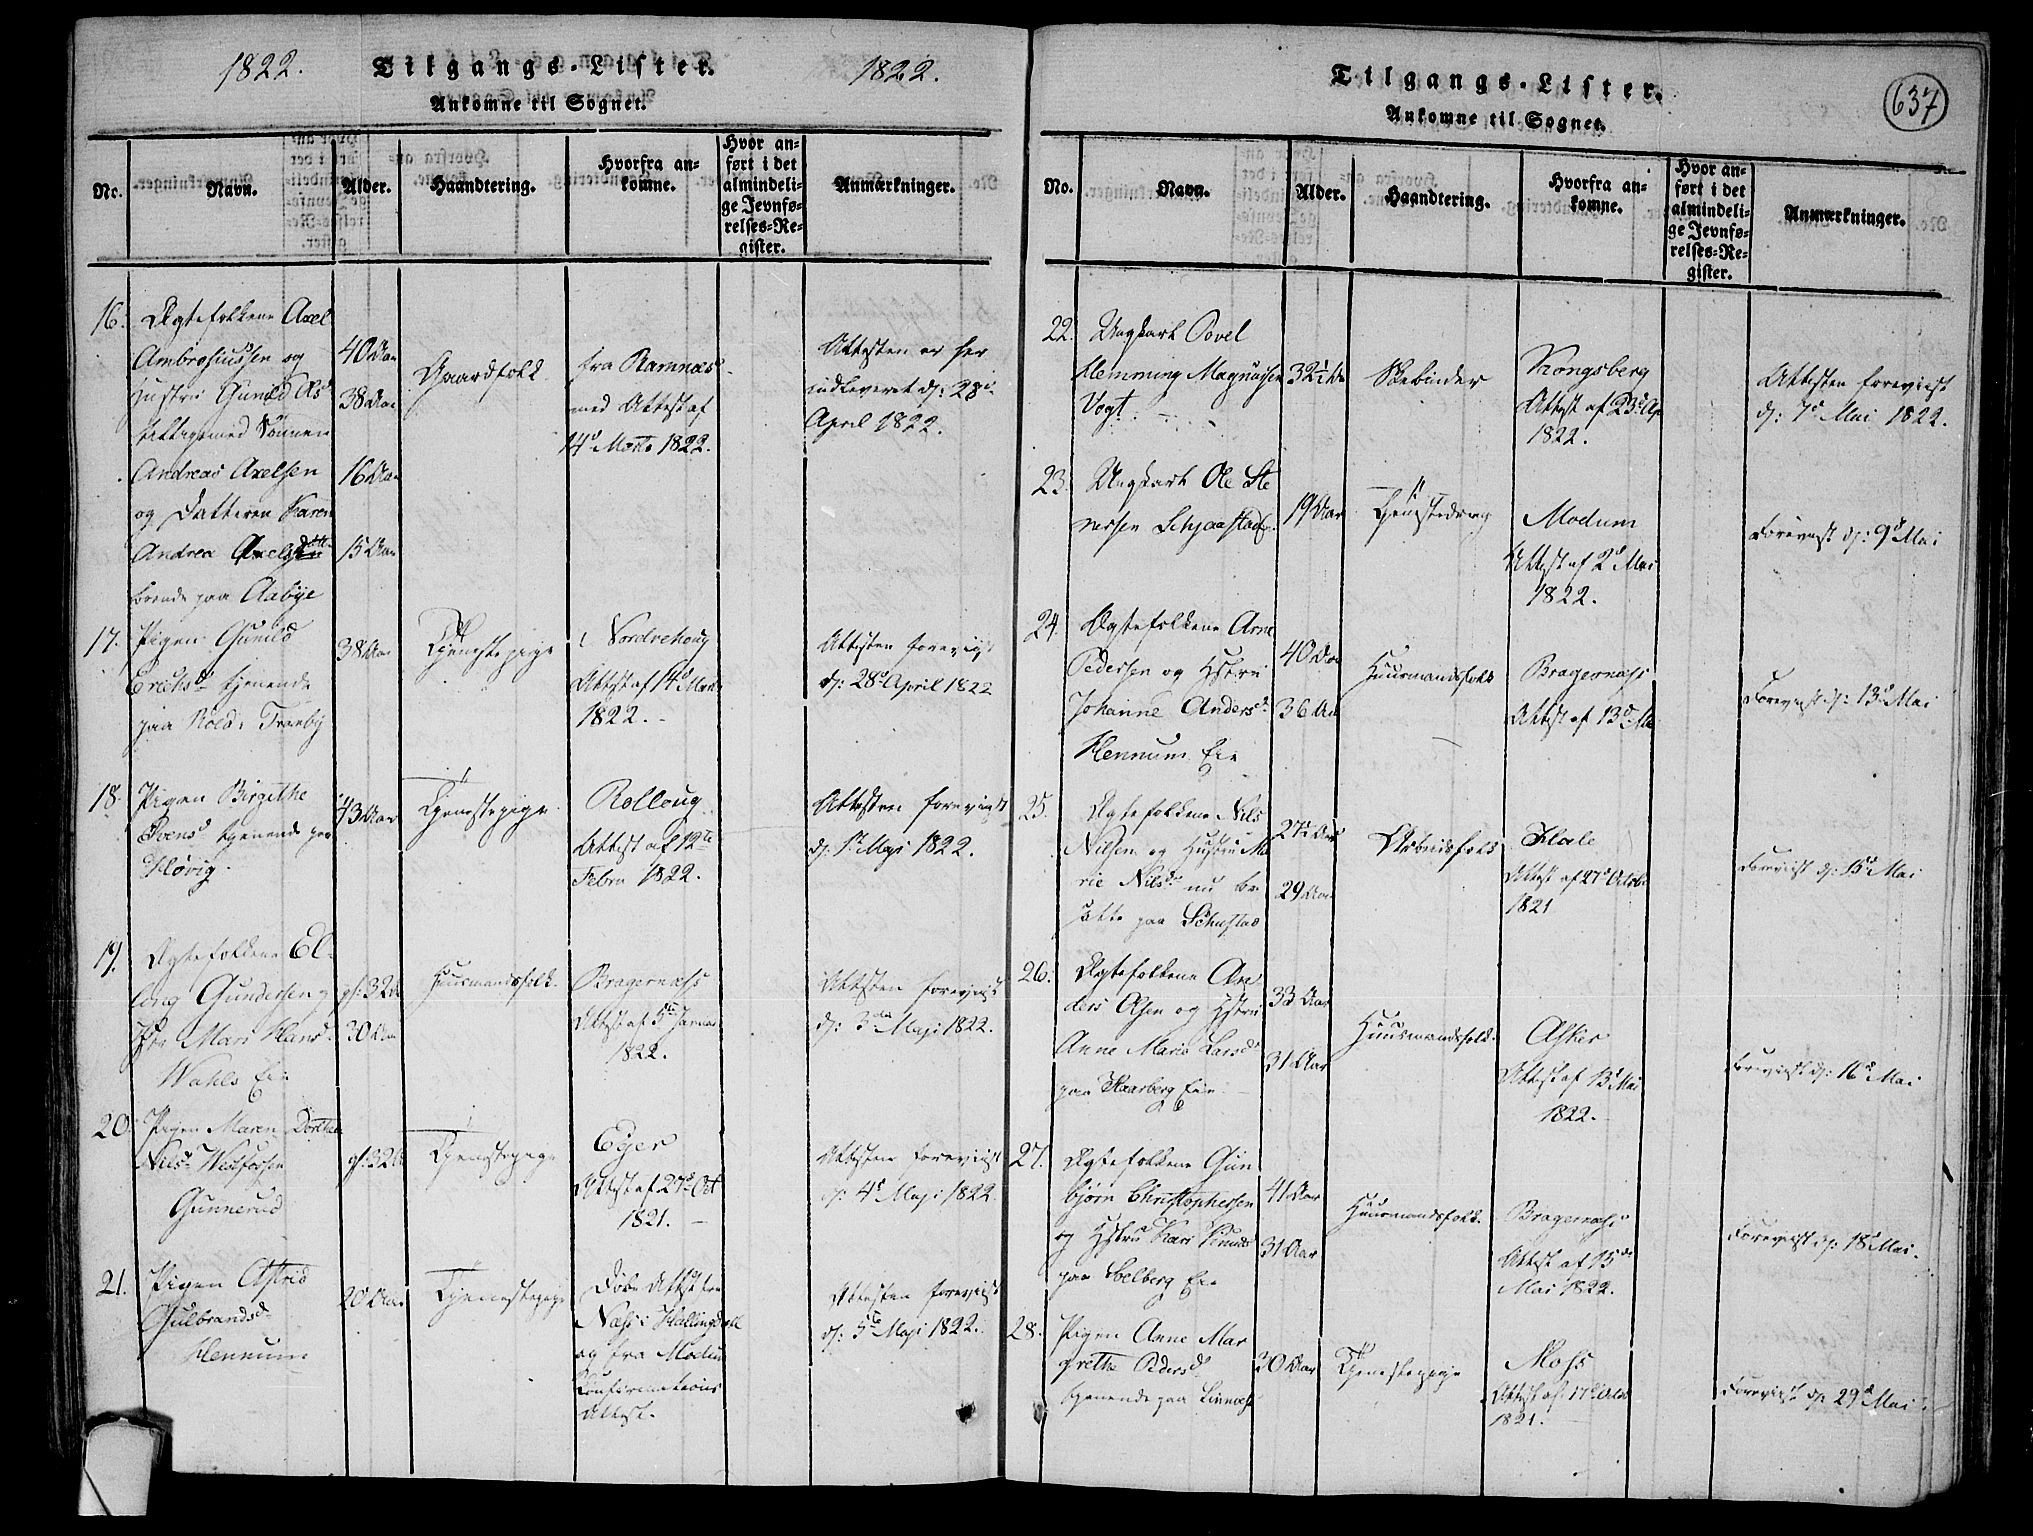 1822. Tilgangs-Lister. 1822.
Ankomne til Sognet.
No.
Navn.
Alder.
Haandtering.
Hvorfra an-
komne.
Hvor an-
ført i det
almindeli-
ge Jevnfø-
relses-Re-
gister.
Anmærkninger.
16.
Ægtefolkene Axel
Ambrosiussen og
Hustru Gunild
med Sønnen
Andreas Axelsen
og Datteren Karen
Andrea Axelsdatter
boende paa Aabye
40 Aar
38 Aar
16 Aar
15 Aar
Gaardfolk
fra Ramnæs
med Attest af
14d Marts 1822.
Attesten er her
indleveret d: 28d
April 1822.
17.
Pigen Gunild
Ericksd. tjenende
paa Tranby
38 Aar
Tjenestepige
Nordrehoug
Attest af 14d Marts
1822.
Attesten foreviist
d: 28d April 1822
18.
Pigen Birgithe
Svensd. tjenende paa
Høvig.
43 Aar
Tjenestepige
Rolloug
Attest af 12te
Febru 1822.
Attesten foreviist
d: 1ste Maji 1822.
19.
Ægtefolkene El-
ling Gundersen og
Mari Hansd.
Wahls Eie
gl: 32 Aar
30 Aar
Huusmandsfolk.
Bragernæss
Attest af 5te Januar
1822.
Attesten foreviist
d: 3die Maji 1822.
20.
Pigen Maren Dorthea
Nilsd. Westfossen
Gunnerud
gl: 32 Aar
Tjenestepige
Eger
Attest af 27d Oct
1821.
Attesten foreviist
d: 4d Maji 1822
21.
Pigen Astrid
Gulbrandsd.
Hennum
20 Aar
Tjenestepige
Døbe Attest fra
Næss i Hallingdall
og fra Modum
Confirmations
Attest.
Attesten foreviist
d: 5te Maji 1822.
Tilgangs-Lister.
Ankomne til Sognet.
637
No.
Navn.
Alder.
Haandtering.
Hvorfra an-
komne.
Hvor an-
ført i det
almindeli-
ge Jevnfø-
relses-Re-
gister.
Anmærkninger.
22.
Ungkarl Povel
Hemming Magnussen
Vogt.
32½ Aar
Kongsberg
Attest af 23d Ap
1822.
Attesten foreviist
d: 7d Mai 1822.
23.
Ungkarl Ole Ste
nersen
19 Aar
Tjenestedreng
Modum
Attest af 2d Mai
1822.
Foreviist d: 9d Mai
24.
Ægtefolkene Arne
Pedersen og Hstru
Johanne Andersd.
Hennum Eie
40 Aar
36 Aar
Huusmandsfolk
Bragernæss
Attest af 13d Mai
Foreviist d: 13d Mai
25.
Ægtefolkene Nils
Nilsen og Hustru Ma
rie Nilsd. nu bo
satte paa
27½ Aar
29 Aar
Arbeidsfolk
Hole
Attest af 27d Octob
1821
Foreviist d: 15d Mai
26.
Ægtefolkene An
ders Olsen og Hstru
Anne Maria Larsd.
paa Haarberg Eie
33 Aar
31 Aar
Huusmandsfolk.
Asker
Attest af 13d Mai
1822.
Foreviist d: 16d Mai
27.
Ægtefolkene Gun
bjørn Christophersen
og Hstru Kari Knuds
paa Solberg Eie
41 Aar
31 Aar
Huusmandsfolk.
Bragernæss
Attest af 15de
Mai 1822.
Foreviist d: 18d Mai.
28.
Pigen Anne Mar
grethe Pedersd.
tjenende paa
30 Aar
Tjenestepige
Moss
Attest af 17d Octob
1821.
Foreviist d: 29d Mai